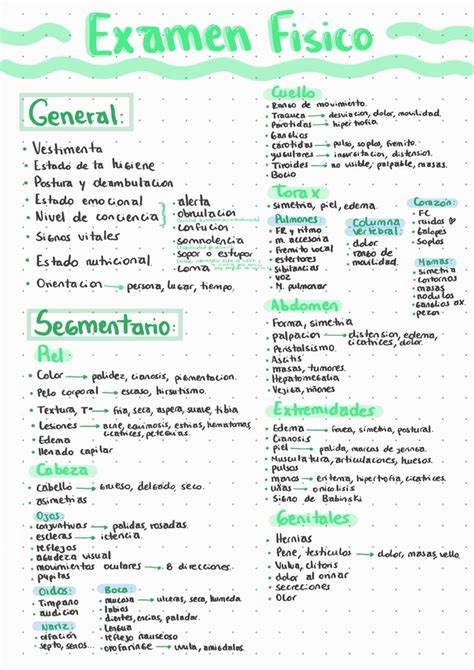 Examen Fisico
General:
• Vestimenta
• Estado de ta higiene
• Postura y deambulacion
• Estado emocional
• Nivel de conciencia
• Signos vitales
• Estado nutricional
• Orientacion → persona, lugar, tiempo.
• alerta
• obnulacion
• confucion
• somnolencia
• sopor o estupor
• coma
Segmentario:
Piel:
• Color → palidez, cianosis, pigmentacion.
• Pelo corporal → escaso, hirsutismo.
• Textura, T° → fria, seca, aspera, suave, tibia.
• Lesiones → acne, equimosis, estrias, hematomas,
cicatrices, petequias.
• Edema
• llenado capilar
Cabeza
• cabello → grueso, delgado, seco.
• asimetrias
Ojos:
• conjuntivas → palidas, rosadas.
• escleras → ictericia.
• reflejos
• agudeza visual
• movimientos oculares → 8 direcciones.
• pupilas
Oidos:
• Timpano
• audicion
Nariz:
• olfacion
• septo, senos...
Boca:
• mucosa → ulceras, seca, humeda
• labios
• dientes, encias, paladar.
• Lengua
• reflejo nauseoso
• orofaringe → uvula, amigdalas.
Cuello
• Rango de movimiento.
• Traquea → desviacion, dolor, movilidad.
• Parotidas → hipertrofia.
• Ganglios
• carotidas → pulso, soplos, fremito.
• yugulares → ingurgitacion, distension.
• Tiroides → no visible, palpable, masas.
• Bocio
Torax
• simetria, piel, edema.
Pulmones:
• FR y ritmo
• m. accesoria
• Fremito vocal
• estertores
• Sibilancias
• voz
• M. pulmonar
Columna
vertebral:
• dolor
• rango de
movilidad.
Corazón:
• FC
• ruidos
• Galopes
• Soplos
Mamas:
• simetria
• contornos
• masas
• nodulos
• Ganglios ax.
• pezon
Abdomen
• Forma, simetria
• palpacion → distension, edema,
cicatrices, dolor.
• Peristalsismo
• Ascitis
• masas, tumores.
• Hepatomegalia
• Vejiga, riñones
Extremidades
• Edema → fovea, simetria, postural.
• Cianosis
• piel → palida, marcas de jeringa.
• Musculatura, articulaciones, huesos.
• pulsos
• manos → eritema, hipertrofia, cicatrices.
• uñas → onicolisis
• Signo de Babinski
Genitales
• Hernias
• Pene, testiculos → dolor, masas, vello.
• Vulva, clitoris
• dolor al orinar
• secreciones
• Olor